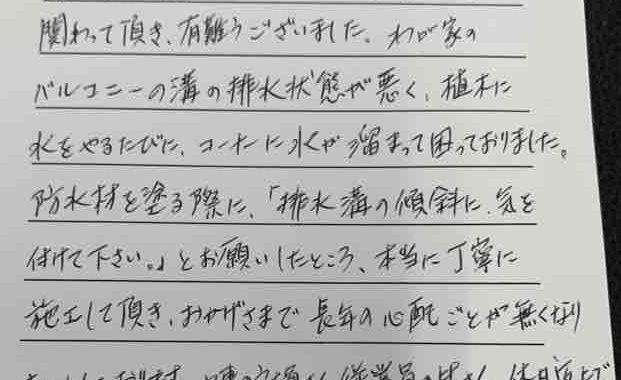 関わって頂き、有難うございました。わが家の
バルコニーの溝の排水状態が悪く、植木に
水をやるたびに、コーナーに水が溜まって困っておりました。
防水材を塗る際に、「排水溝の傾斜に、気を
付けて下さい。」とお願いしたところ、本当に丁寧に
施工して頂き、おかげさまで長年の心配ごとが無くなり